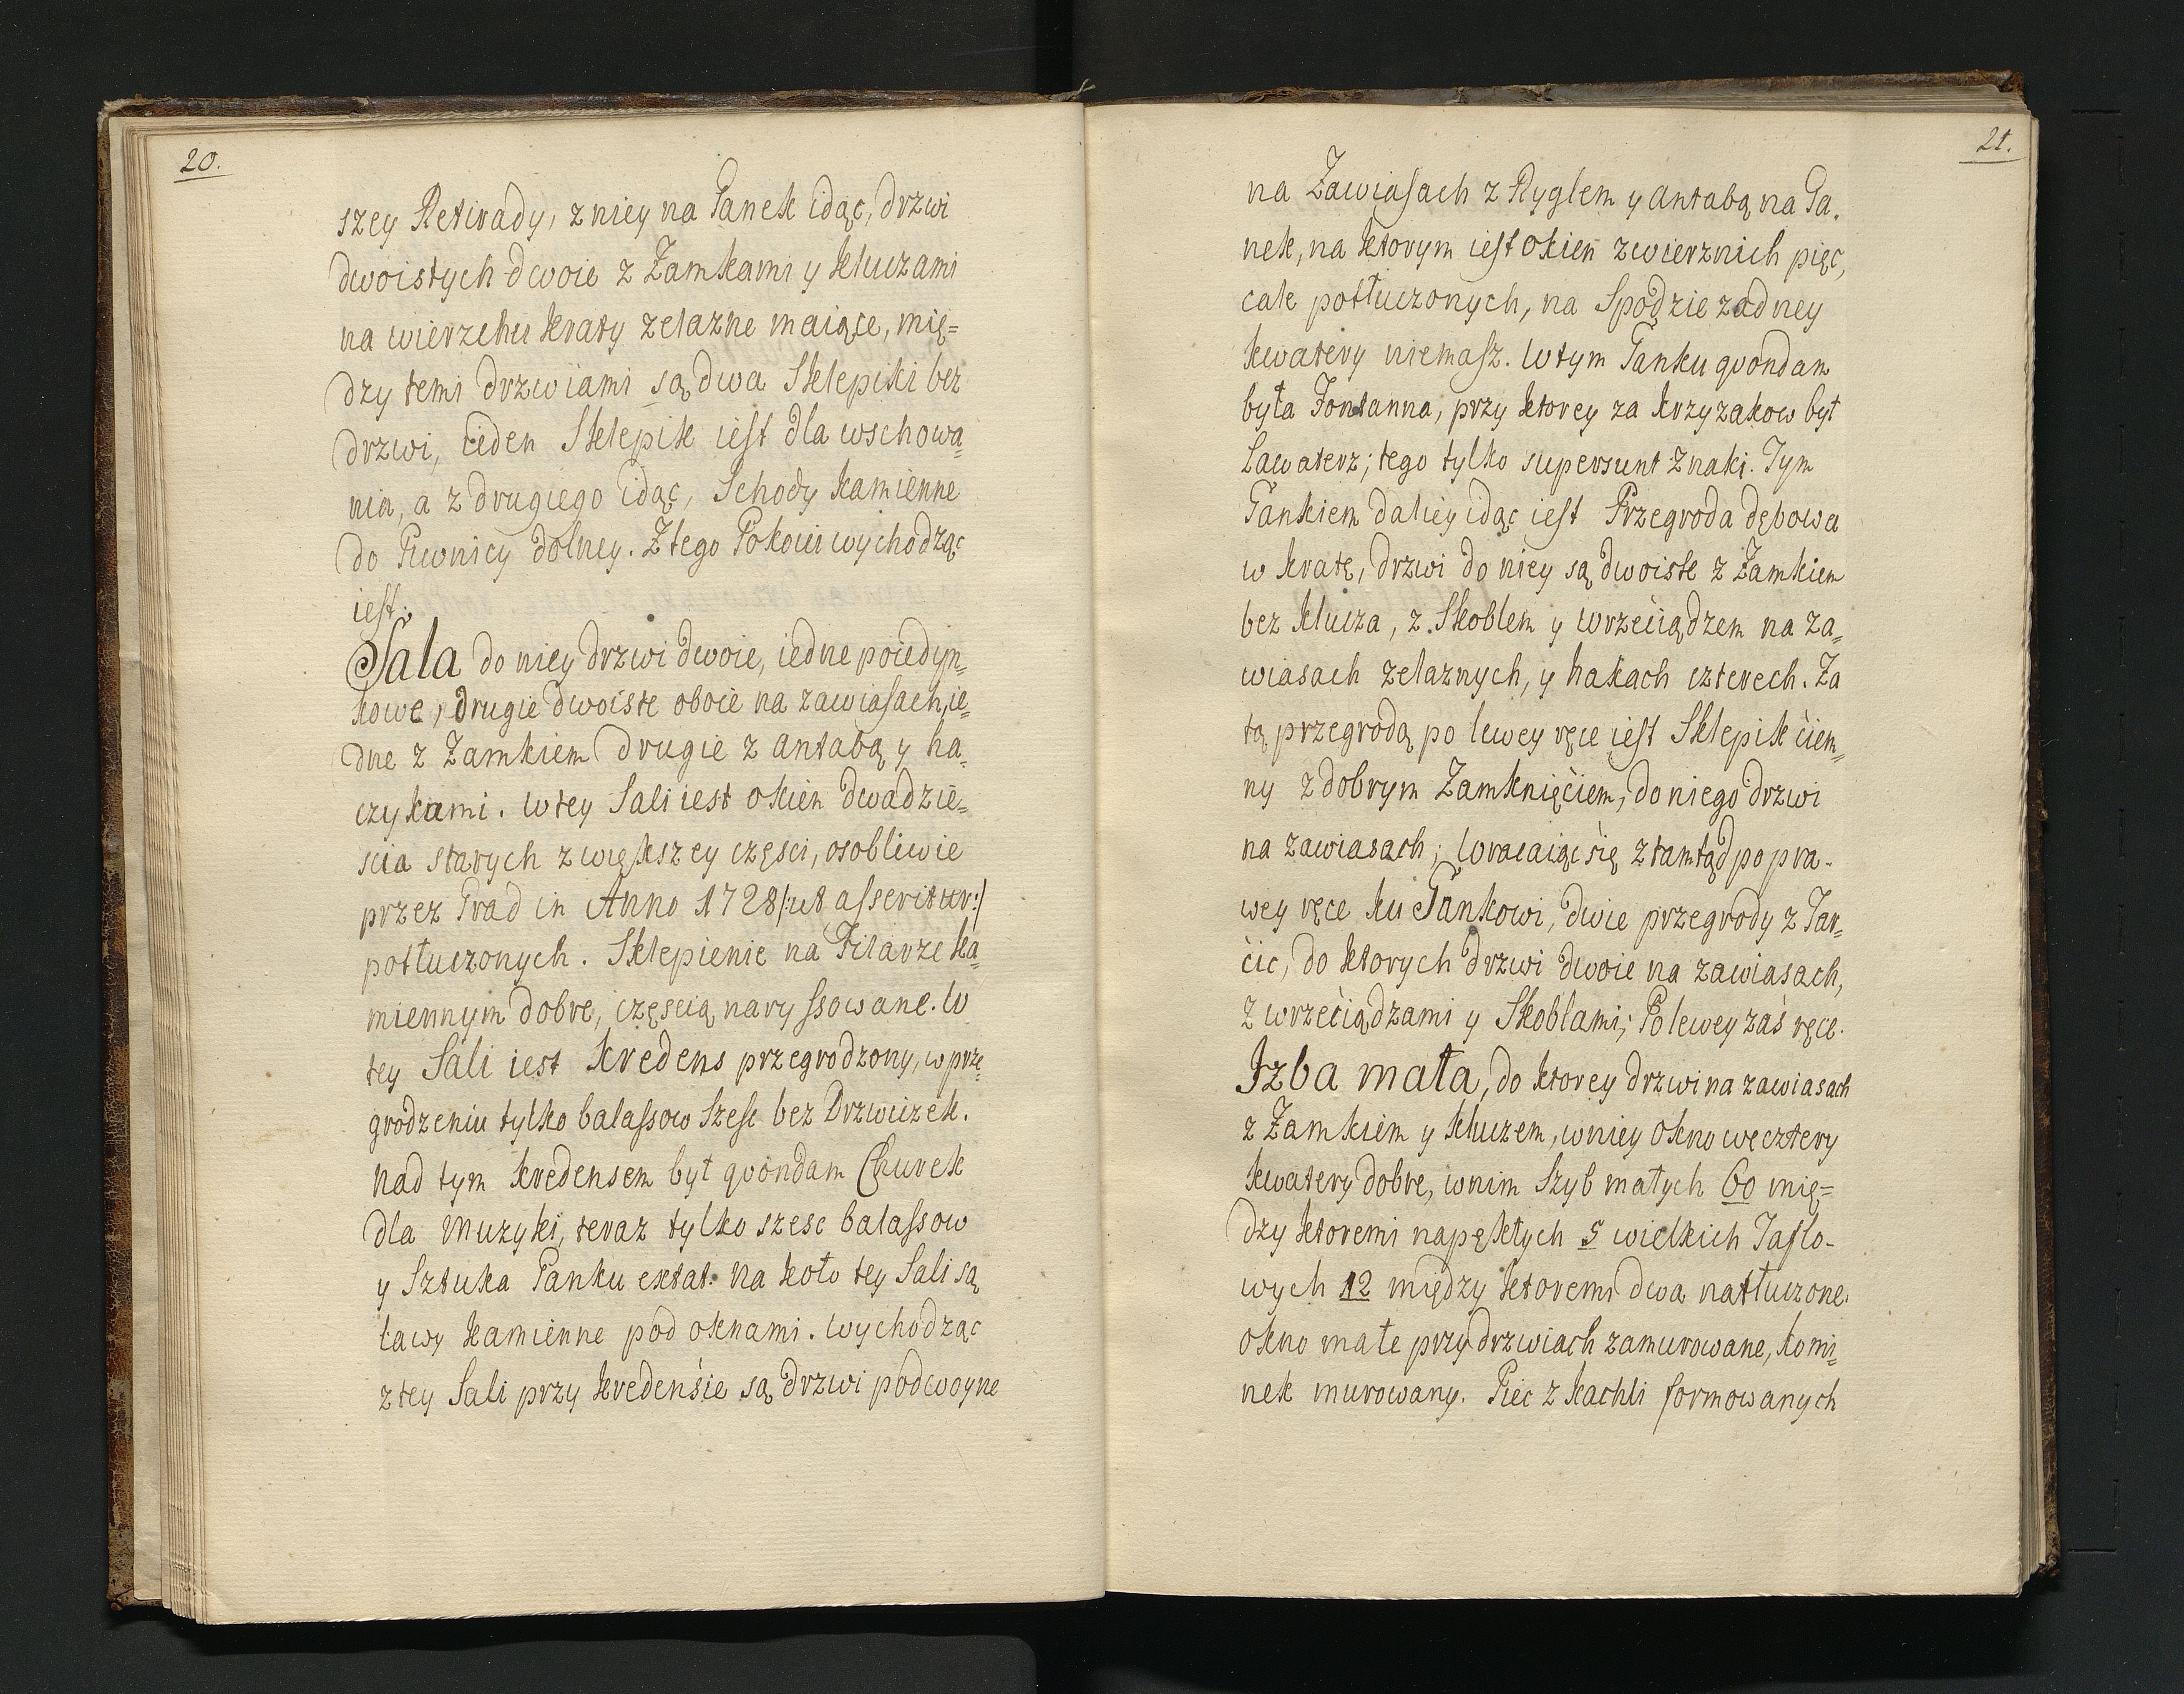 20.
szey Retirady, z niey na Ganek idąc, drzwi
dwoistych dwoie z Zamkami y kluczami
na wierzchu kraty zelazne maiące, mię=
dzy temi drzwiami są dwa Sklepiki bez
drzwi, ieden Sklepik iest dla wschowa=
nia, a z drugiego idąc, Schody kamienne
do Piwnicy dolney. Z tego Pokoiu wychodząc
iest:
Sala do niey drzwi dwoie, iedne poiedyn=
kowe, drugie dwoiste oboie na zawiasach, ie=
dne z Zamkiem drugie z antabą y ha=
czykami. W tey Sali iest okien dwadzie=
scia starych z większey części, osobliwie
przez Grad in Anno 1728 /:ut asseritur:/
potłuczonych. Sklepienie na Filarze ka=
miennym dobre, częscią naryssowane. W
tey Sali iest kredens przegrodzony, w prze=
grodzeniu tylko balassow szesc bez Drzwiczek.
nad tym kredensem był qvondam Churek
dla Muzyki, teraz tylko szesc balassow
y Sztuka Ganku extat. na koło tey Sali są
ławy kamienne pod oknami. wychodząc
z tey Sali przy kredensie są drzwi podwoyne
21.
na Zawiasach z Ryglem y antabą na Ga.
nek, na ktorym iest okien zwierznich pięc,
cale potłuczonych, na Spodzie zadney
kwatery niemasz. W tym Ganku qvondam
była Fontanna, przy ktorey za krzyzakow był
Lawaterz; tego tylko supersunt znaki. Tym
Gankiem daliey idąc iest Przegroda dębowa
w kratę, drzwi do niey są dwoiste z Zamkiem
bez klucza, z Skoblem y wrzeciądzem na za=
wiasach zelaznych, y hakach czterech. Za
tą przegrodą po lewey ręce iest Sklepik ciem=
ny z dobrym Zamknięciem, do niego drzwi
na zawiasach; Wracaiąc się z tamtąd po pra-
wey ręce ku Gankowi, dwie przegrody z Tar=
cic, do ktorych drzwi dwoie na zawiasach,
z wrzeciądzami y Skoblami; Po lewey zaś ręce.
Izba mała, do ktorey drzwi na zawiasach
z Zamkiem y kluczem, w niey okno we cztery
kwatery dobre, w nim Szyb małych 60 mię=
dzy ktoremi napękłych 5 wielkich Taflo-
wych 12 między ktoremi dwa natłuczone.
okno małe przy drzwiach zamurowane, komi=
nek murowany. Piec z kachli formowanych